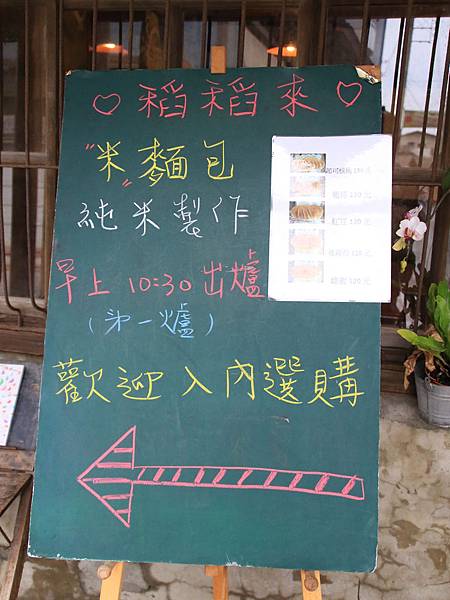 ♡稻稻來♡
"米"麵包
純米製作
早上 10:30 出爐
(第一爐)
歡迎入內選購
110元
紅豆 130元
120元
120元